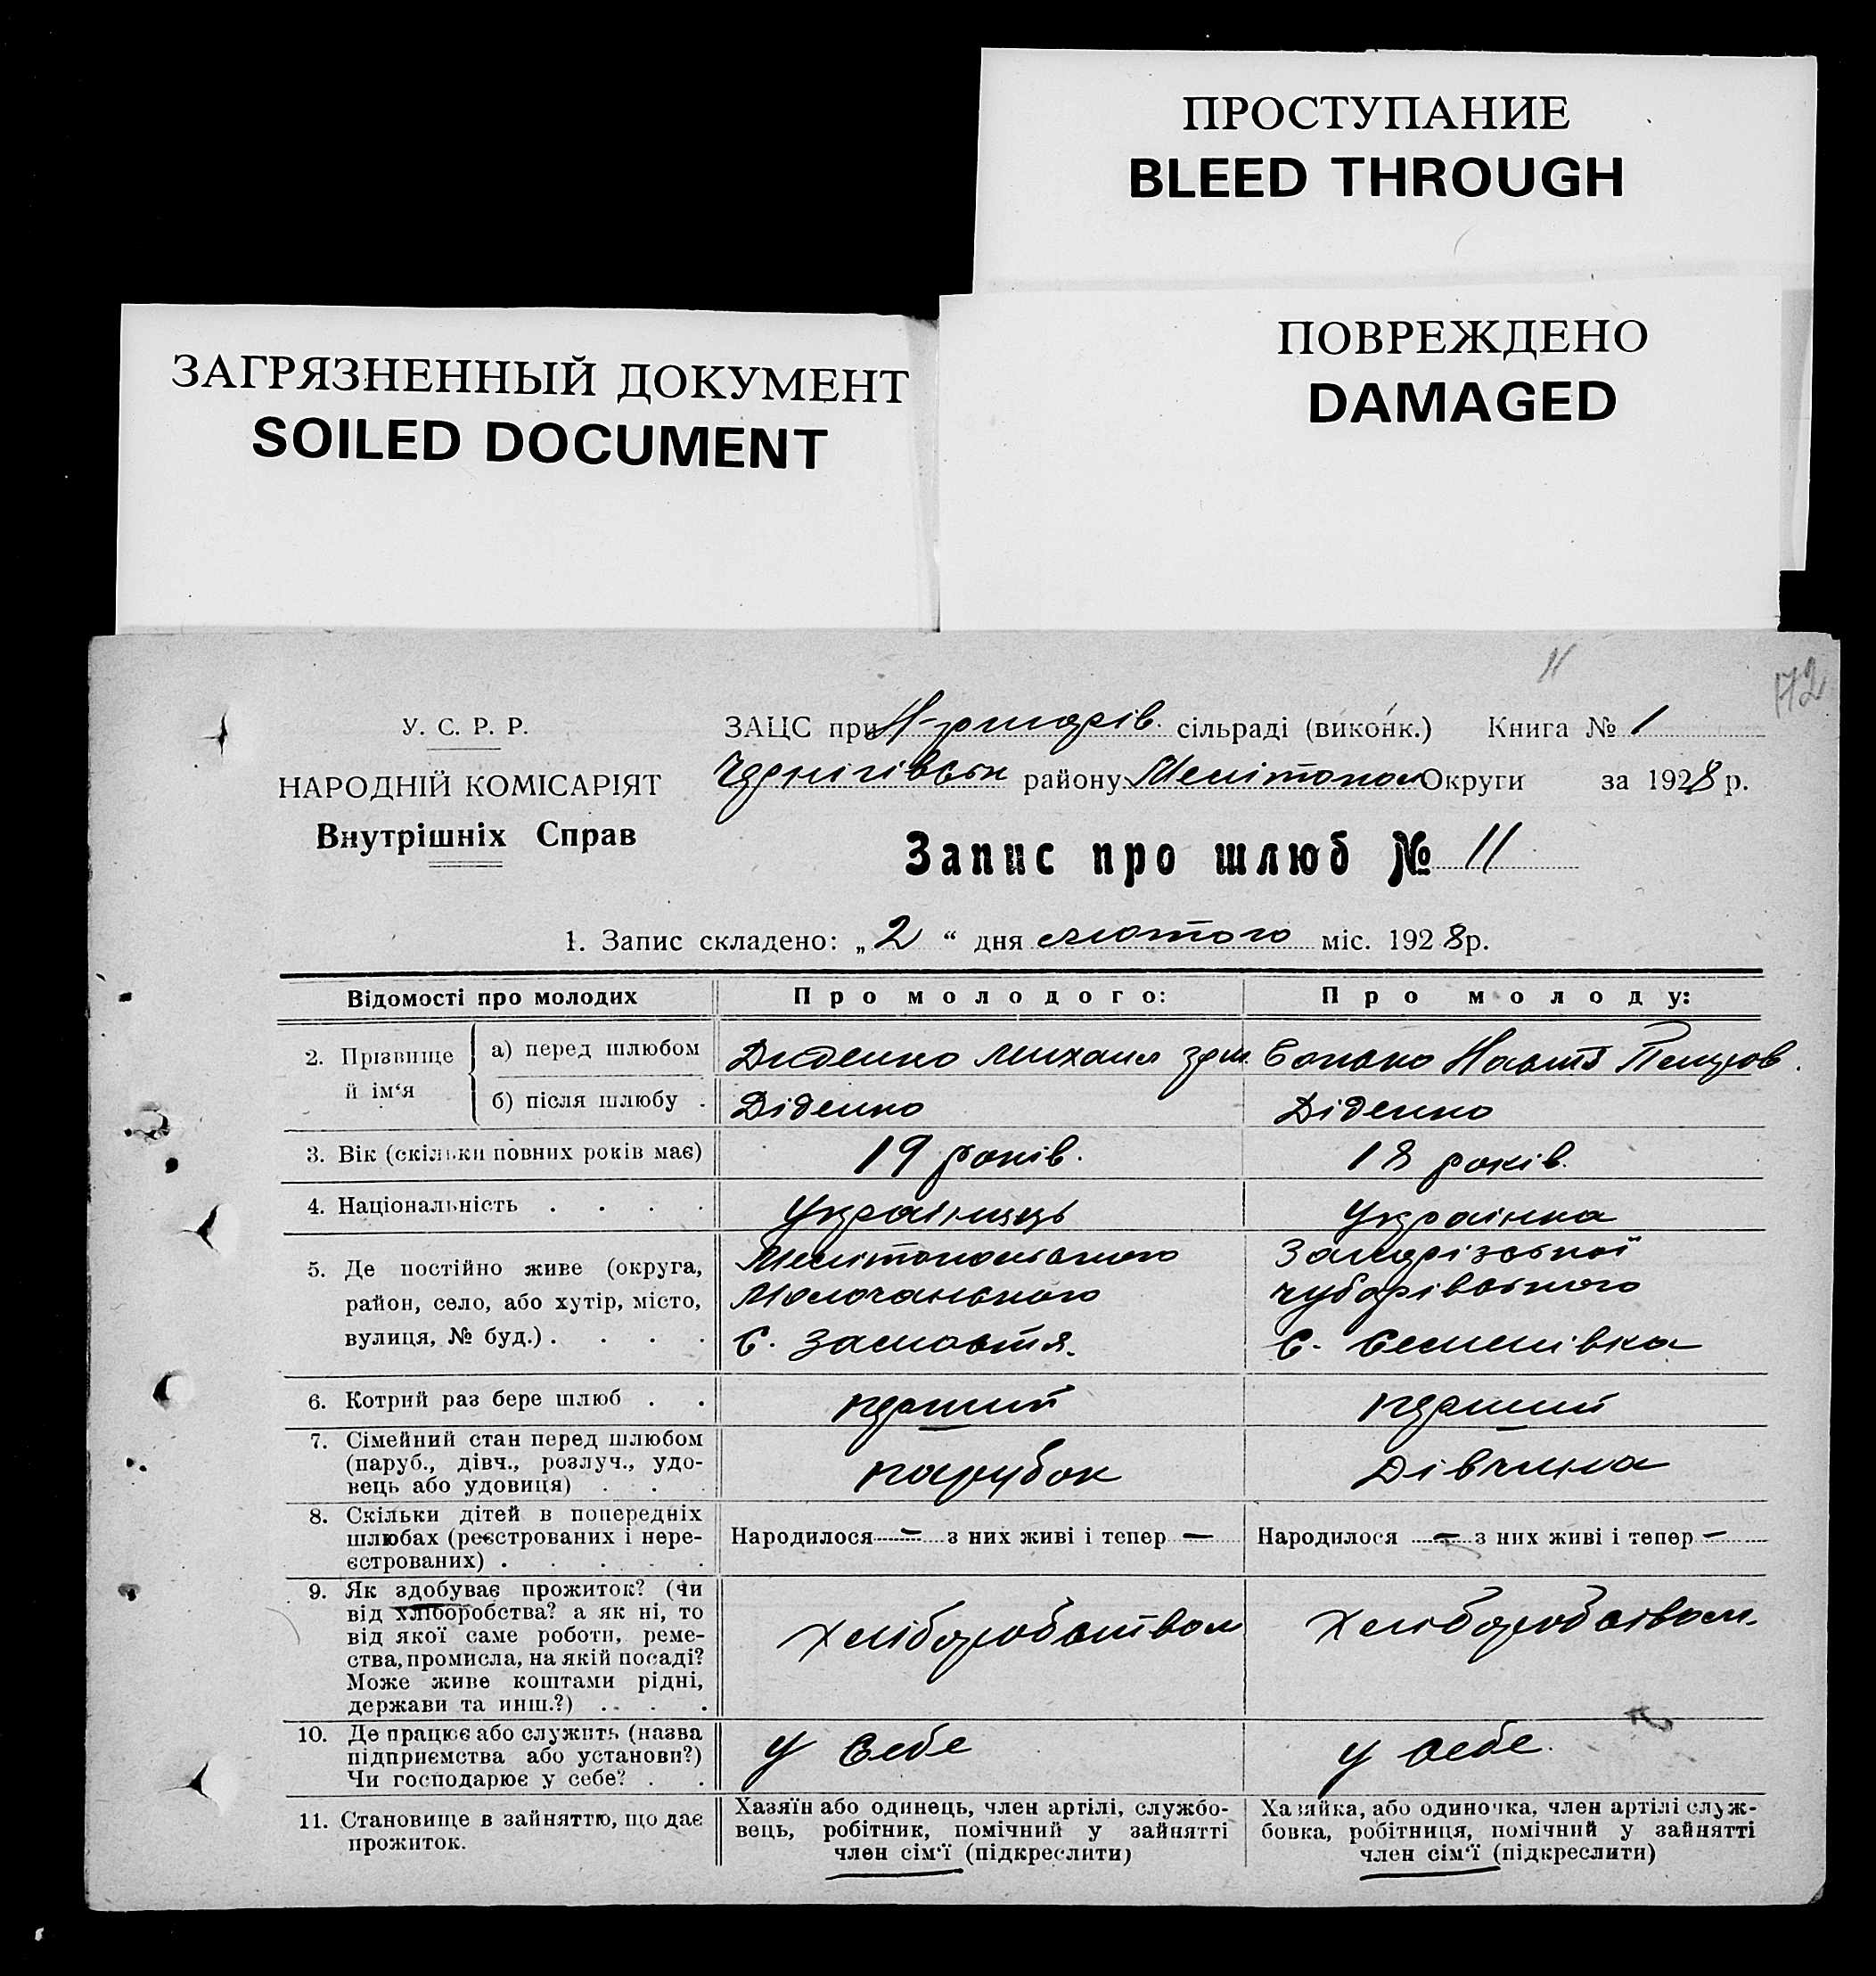 ПРОСТУПАНИЕ
BLEED THROUGH
ПОВРЕЖДЕНО
DAMAGED
ЗАГРЯЗНЕННЫЙ ДОКУМЕНТ
SOILED DOCUMENT
11
172
У. С. Р. Р.
НАРОДНІЙ КОМІСАРІЯТ
Внутрішніх Справ
ЗАЦС при сільраді (виконк.) Книга № 1
Чернігівськ району Мелітопол Округи за 1928 р.
Запис про шлюб № 11
1. Запис складено: „ 2 “ дня лютого міс. 1928 р.
Відомості про молодих
Про молодого:
Про молоду:
2. Прізвище й ім‘я
а) перед шлюбом
Діденко Михаил
Настя Петров.
б) після шлюбу .
Діденко
Діденко
3. Вік (скільки повних років має)
19 років.
18 років.
4. Національність . . . .
Українець
Українка
5. Де постійно живе (округа,
район, село, або хутір, місто,
вулиця, № буд.) . . . .
Мелітопольського
Молочанського
С. Замостя.
Запорізської
Чубарівського
С. Семенівка
6. Котрий раз бере шлюб . .
перший
перший
7. Сімейний стан перед шлюбом
(паруб., дівч., розлуч., удо-
вець або удовиця) . . .
парубок
Дівчина
8. Скільки дітей в попередніх
шлюбах (реєстрованих і нере-
єстрованих) . . . . .
Народилося — з них живі і тепер —
Народилося — з них живі і тепер —
9. Як здобуває прожиток? (чи
від хліборобства? а як ні, то
від якої саме роботи, реме-
ства, промисла, на якій посаді?
Може живе коштами рідні,
держави та инш.?) . . . .
Хліборобством
Хліборобсівом.
10. Де працює або служить (назва
підприємства або установи?)
Чи господарює у себе? . .
У себе
У себе.
11. Становище в зайняттю, що дає
прожиток.
Хазяїн або одинець, член артілі, службо-
вець, робітник, помічний у зайнятті
член сім‘ї (підкреслити)
Хазяйка, або одиночка, член артілі служ-
бовка, робітниця, помічний у зайнятті
член сім‘ї (підкреслити)